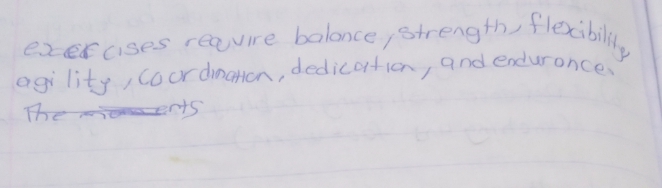 exercises require balance, strength, flexibility
agility, coordination, dedication, and endurance.
The